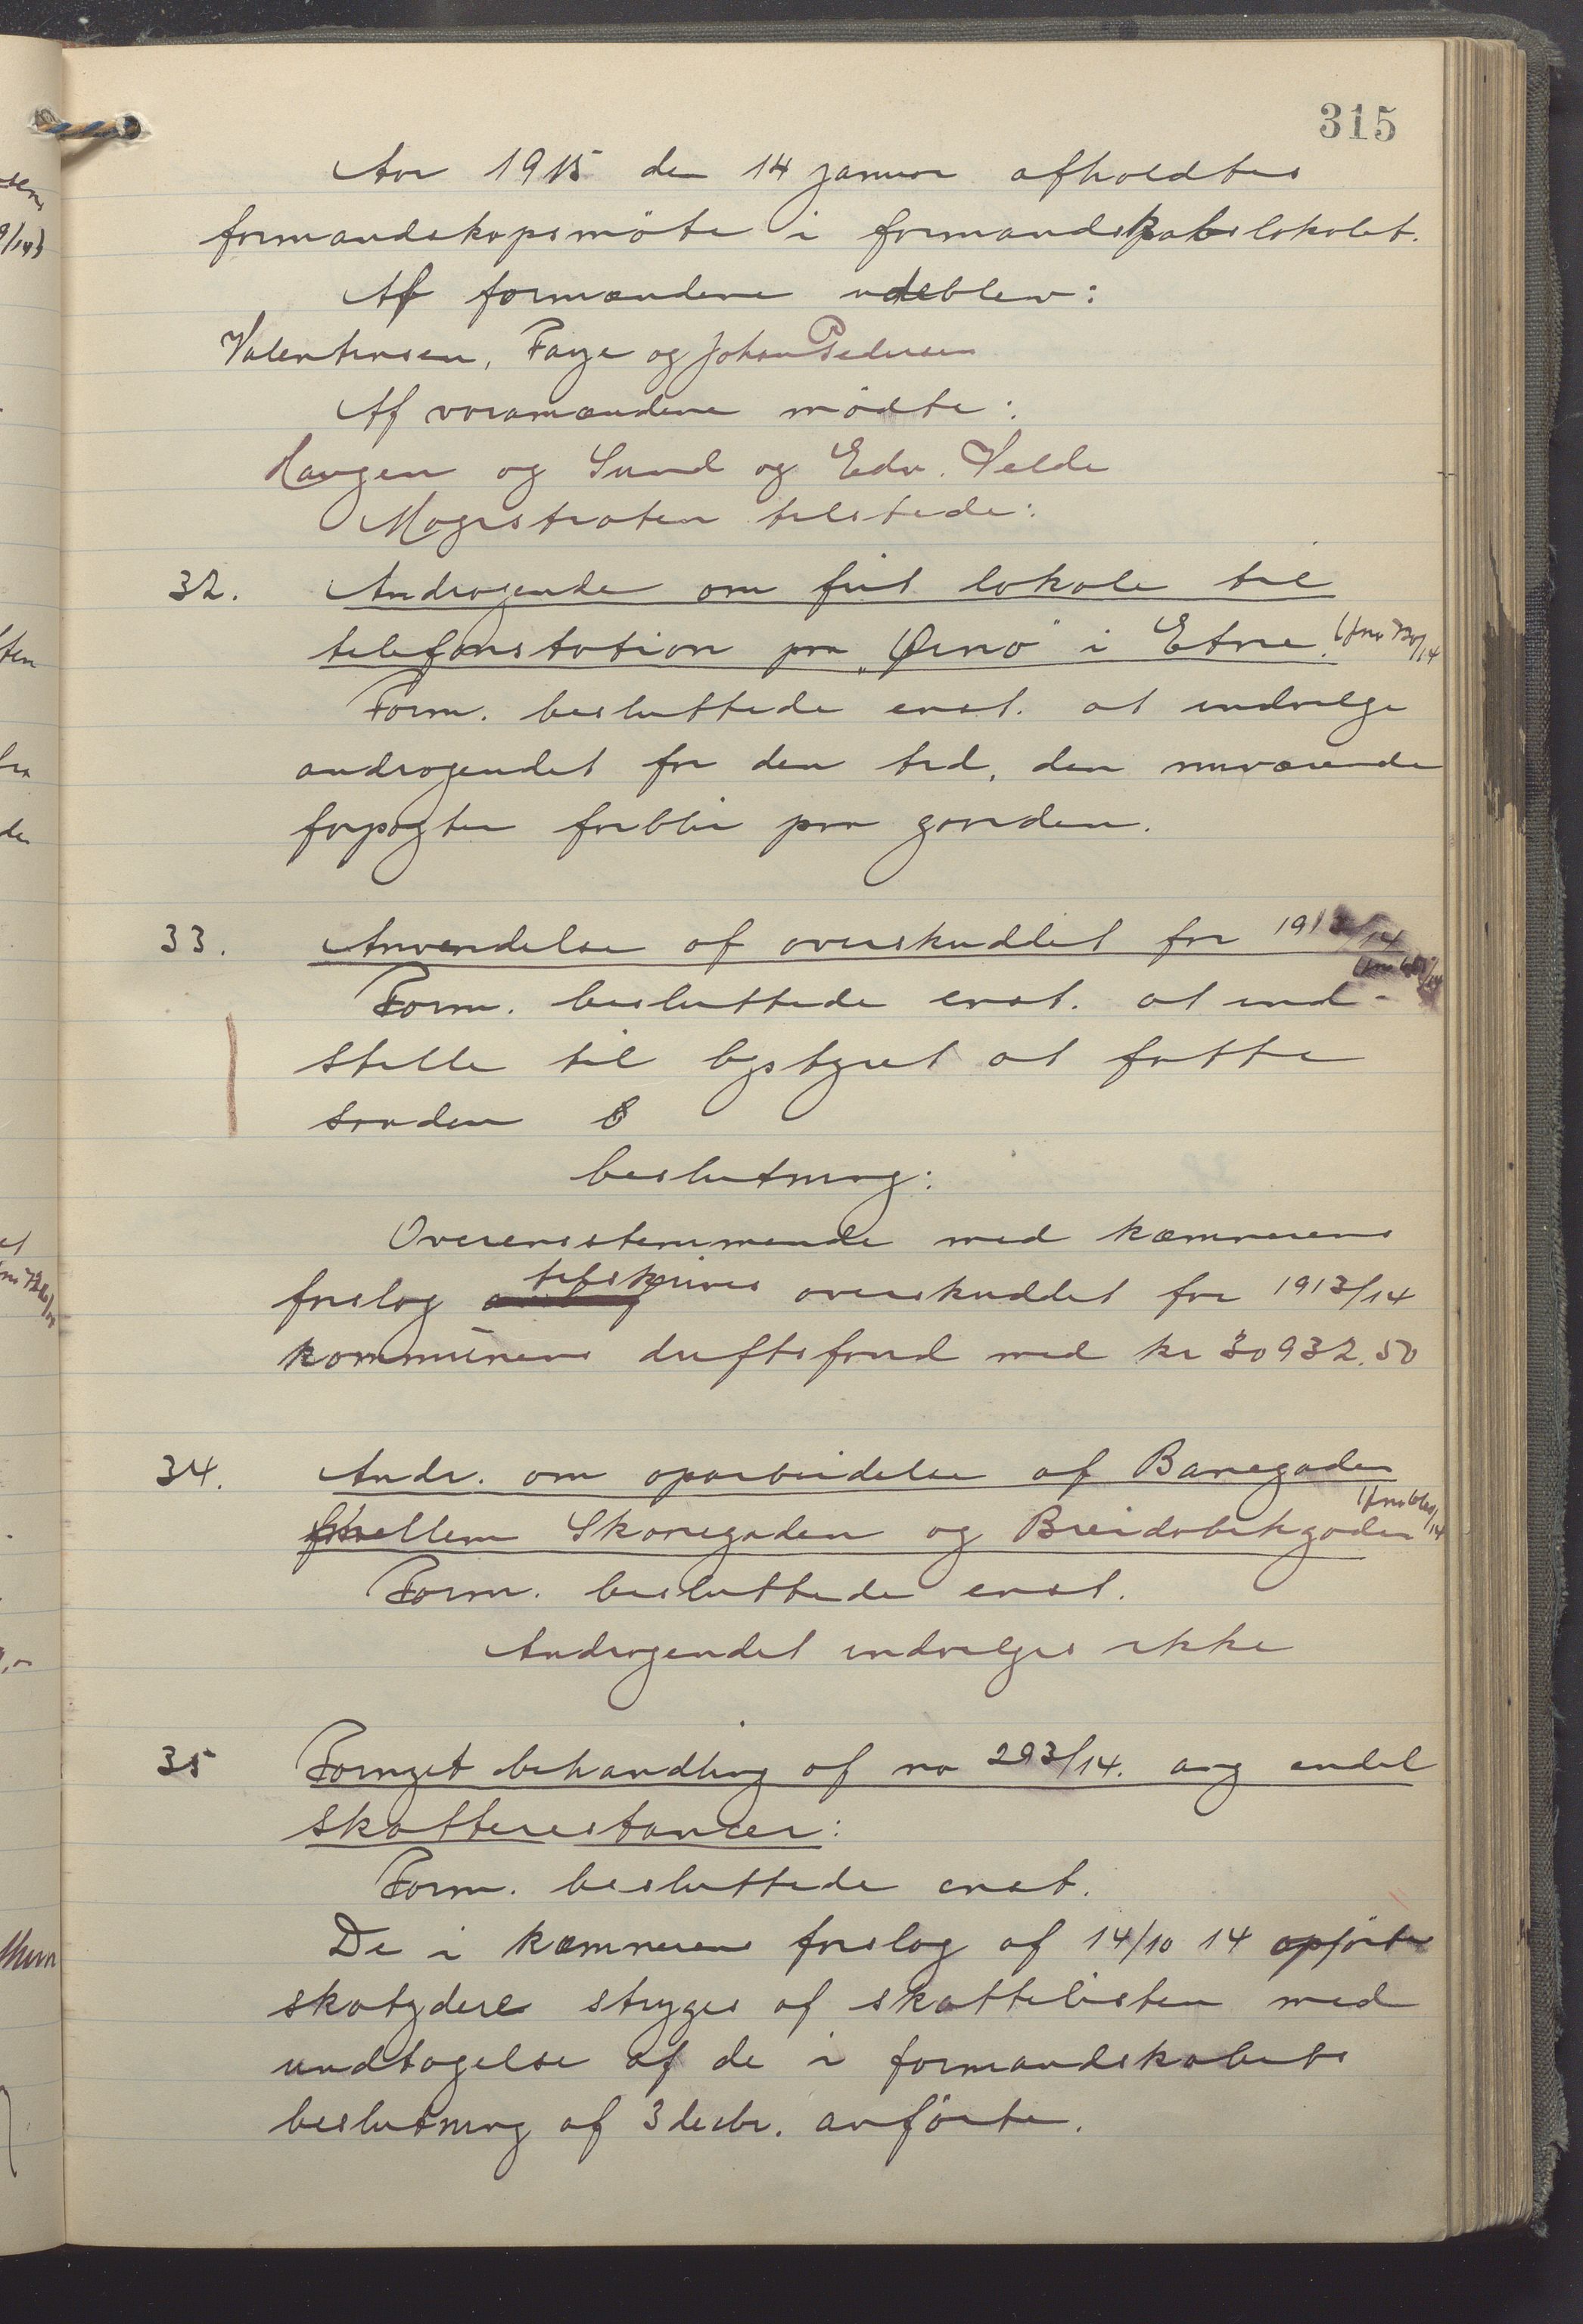 315
Aar 1915 den 14 januar afholdtes
formandskapsmöte i formandskabslokalet.
Af formændene udeblev:
Valentinsen, Faye og Johan Pedersen
Af varamændene mödte:
Haugen og Sund og Edv. Velde
Magistraten tilstede:
32. Andragende om frit lokale til
telefonstation paa "Örno" i Etne. (fno 720/14
Form. besluttede enst. at indvilge
andragendet for den tid, den nuværende
forpagter forblir paa gaarden.
33. Anvendelse af overskuddet for 1913/14
Form. besluttede enst. at ind-
stille til bystyret at fatte
saaden
beslutning:
Overensstemmende med kæmnerens
forslag tilskrives overskuddet for 1913/14
kommunens driftsfond med kr 30932.50
34. Andr. om oparbeidelse af Banegaden
mellem Skaregaden og Breidablikgaden
Form. besluttede enst.
Andragendet indvilges ikke
35 Fornyet behandling af no 293/14. ang endel
skatterestancer:
Form. besluttede enst.
De i kæmnerens forslag af 14/10 14 opförte
skatydere stryges af skattelisten med
undtagelse af de i formandskabets
beslutning af 3 decbr. anförte.